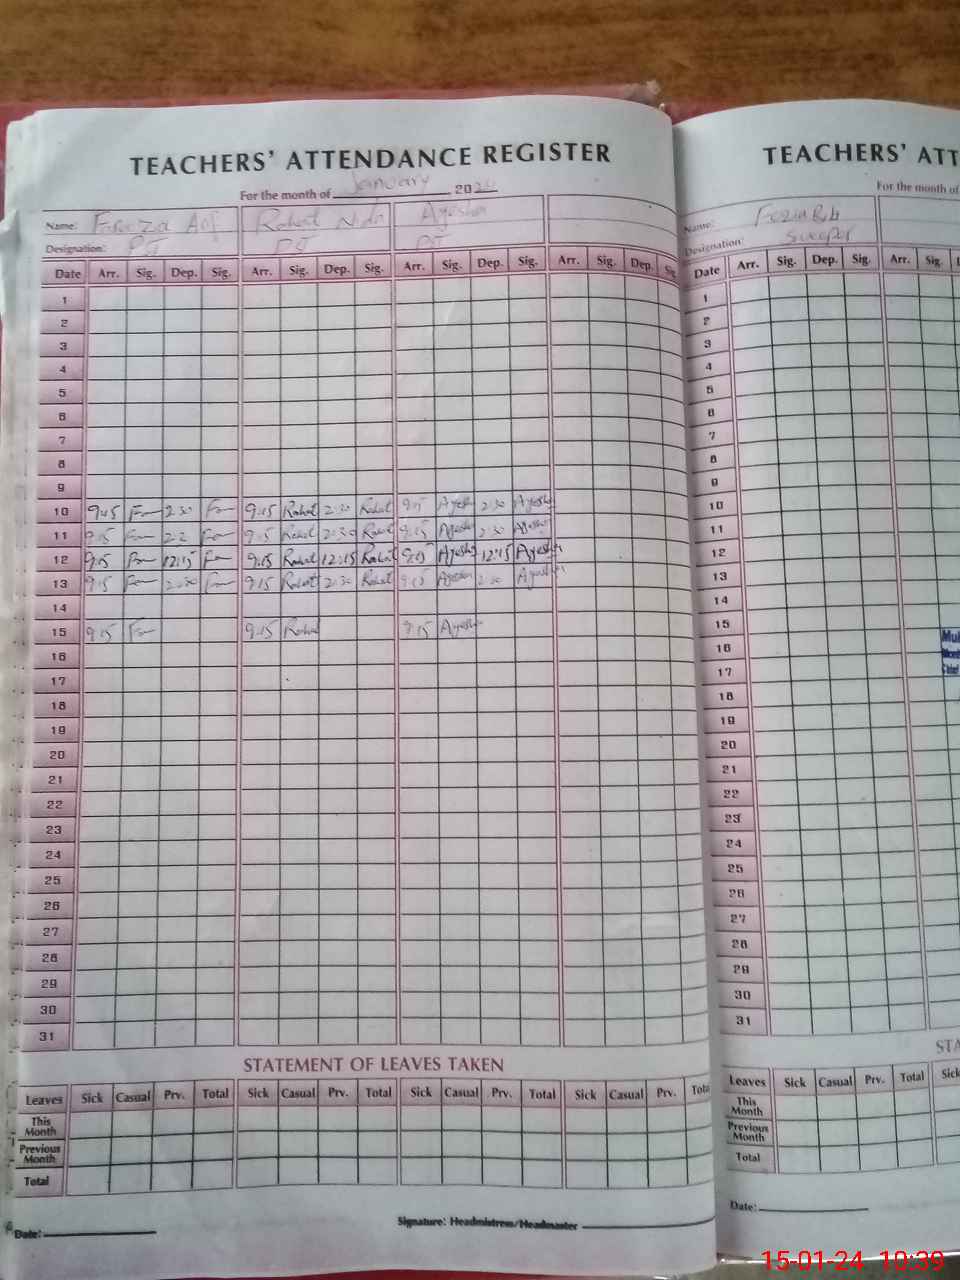 TEACHERS' ATTENDANCE REGISTER
For the month of January 2024
Name: Rahat Ayesha
Designation: PST PST PST
Date Arr. Sig. Dep. Sig. Arr. Sig. Dep. Sig. Arr. Sig. Dep. Sig. Arr. Sig. Dep. Sig.
1
2
3
4
5
6
7
8
9
10 9:15 2:30 9:15 Rahat 2:30 Rahat 9:15 Ayesha 2:30 Ayesha
11 9:15 9:15 Rahat 2:30 Rahat 9:15 Ayesha 2:30 Ayesha
12 9:15 12:15 9:15 Rahat 12:15 Rahat 9:15 Ayesha 12:15 Ayesha
13 9:15 2:30 9:15 Rahat 2:30 Rahat 9:15 Ayesha 2:30 Ayesha
14
15 9:15 9:15 Rahat 9:15 Ayesha
16
17
18
19
20
21
22
23
24
25
26
27
28
29
30
31
STATEMENT OF LEAVES TAKEN
Leaves Sick Casual Prv. Total Sick Casual Prv. Total Sick Casual Prv. Total Sick Casual Prv. Tota
This Month
Previous Month
Total
Date:
Signature: Headmistress/Headmaster
TEACHERS' ATT
For the month of
Name:
Designation: Sweeper
Date Arr. Sig. Dep. Sig. Arr. Sig.
1
2
3
4
5
6
7
8
9
10
11
12
13
14
15
16
17
18
19
20
21
22
23
24
25
26
27
28
29
30
31
STA
Leaves Sick Casual Prv. Total Sick
This Month
Previous Month
Total
Date:
15-01-24 10:39